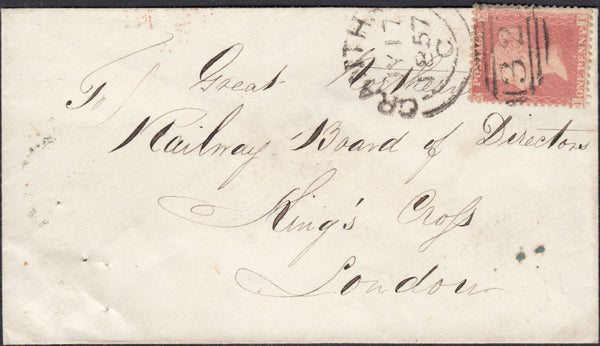 To Great Northern
Railway Board of Directors
King's Cross
London
GRANTHA
17
1857
C
POSTAGE
ONE PENNY
332